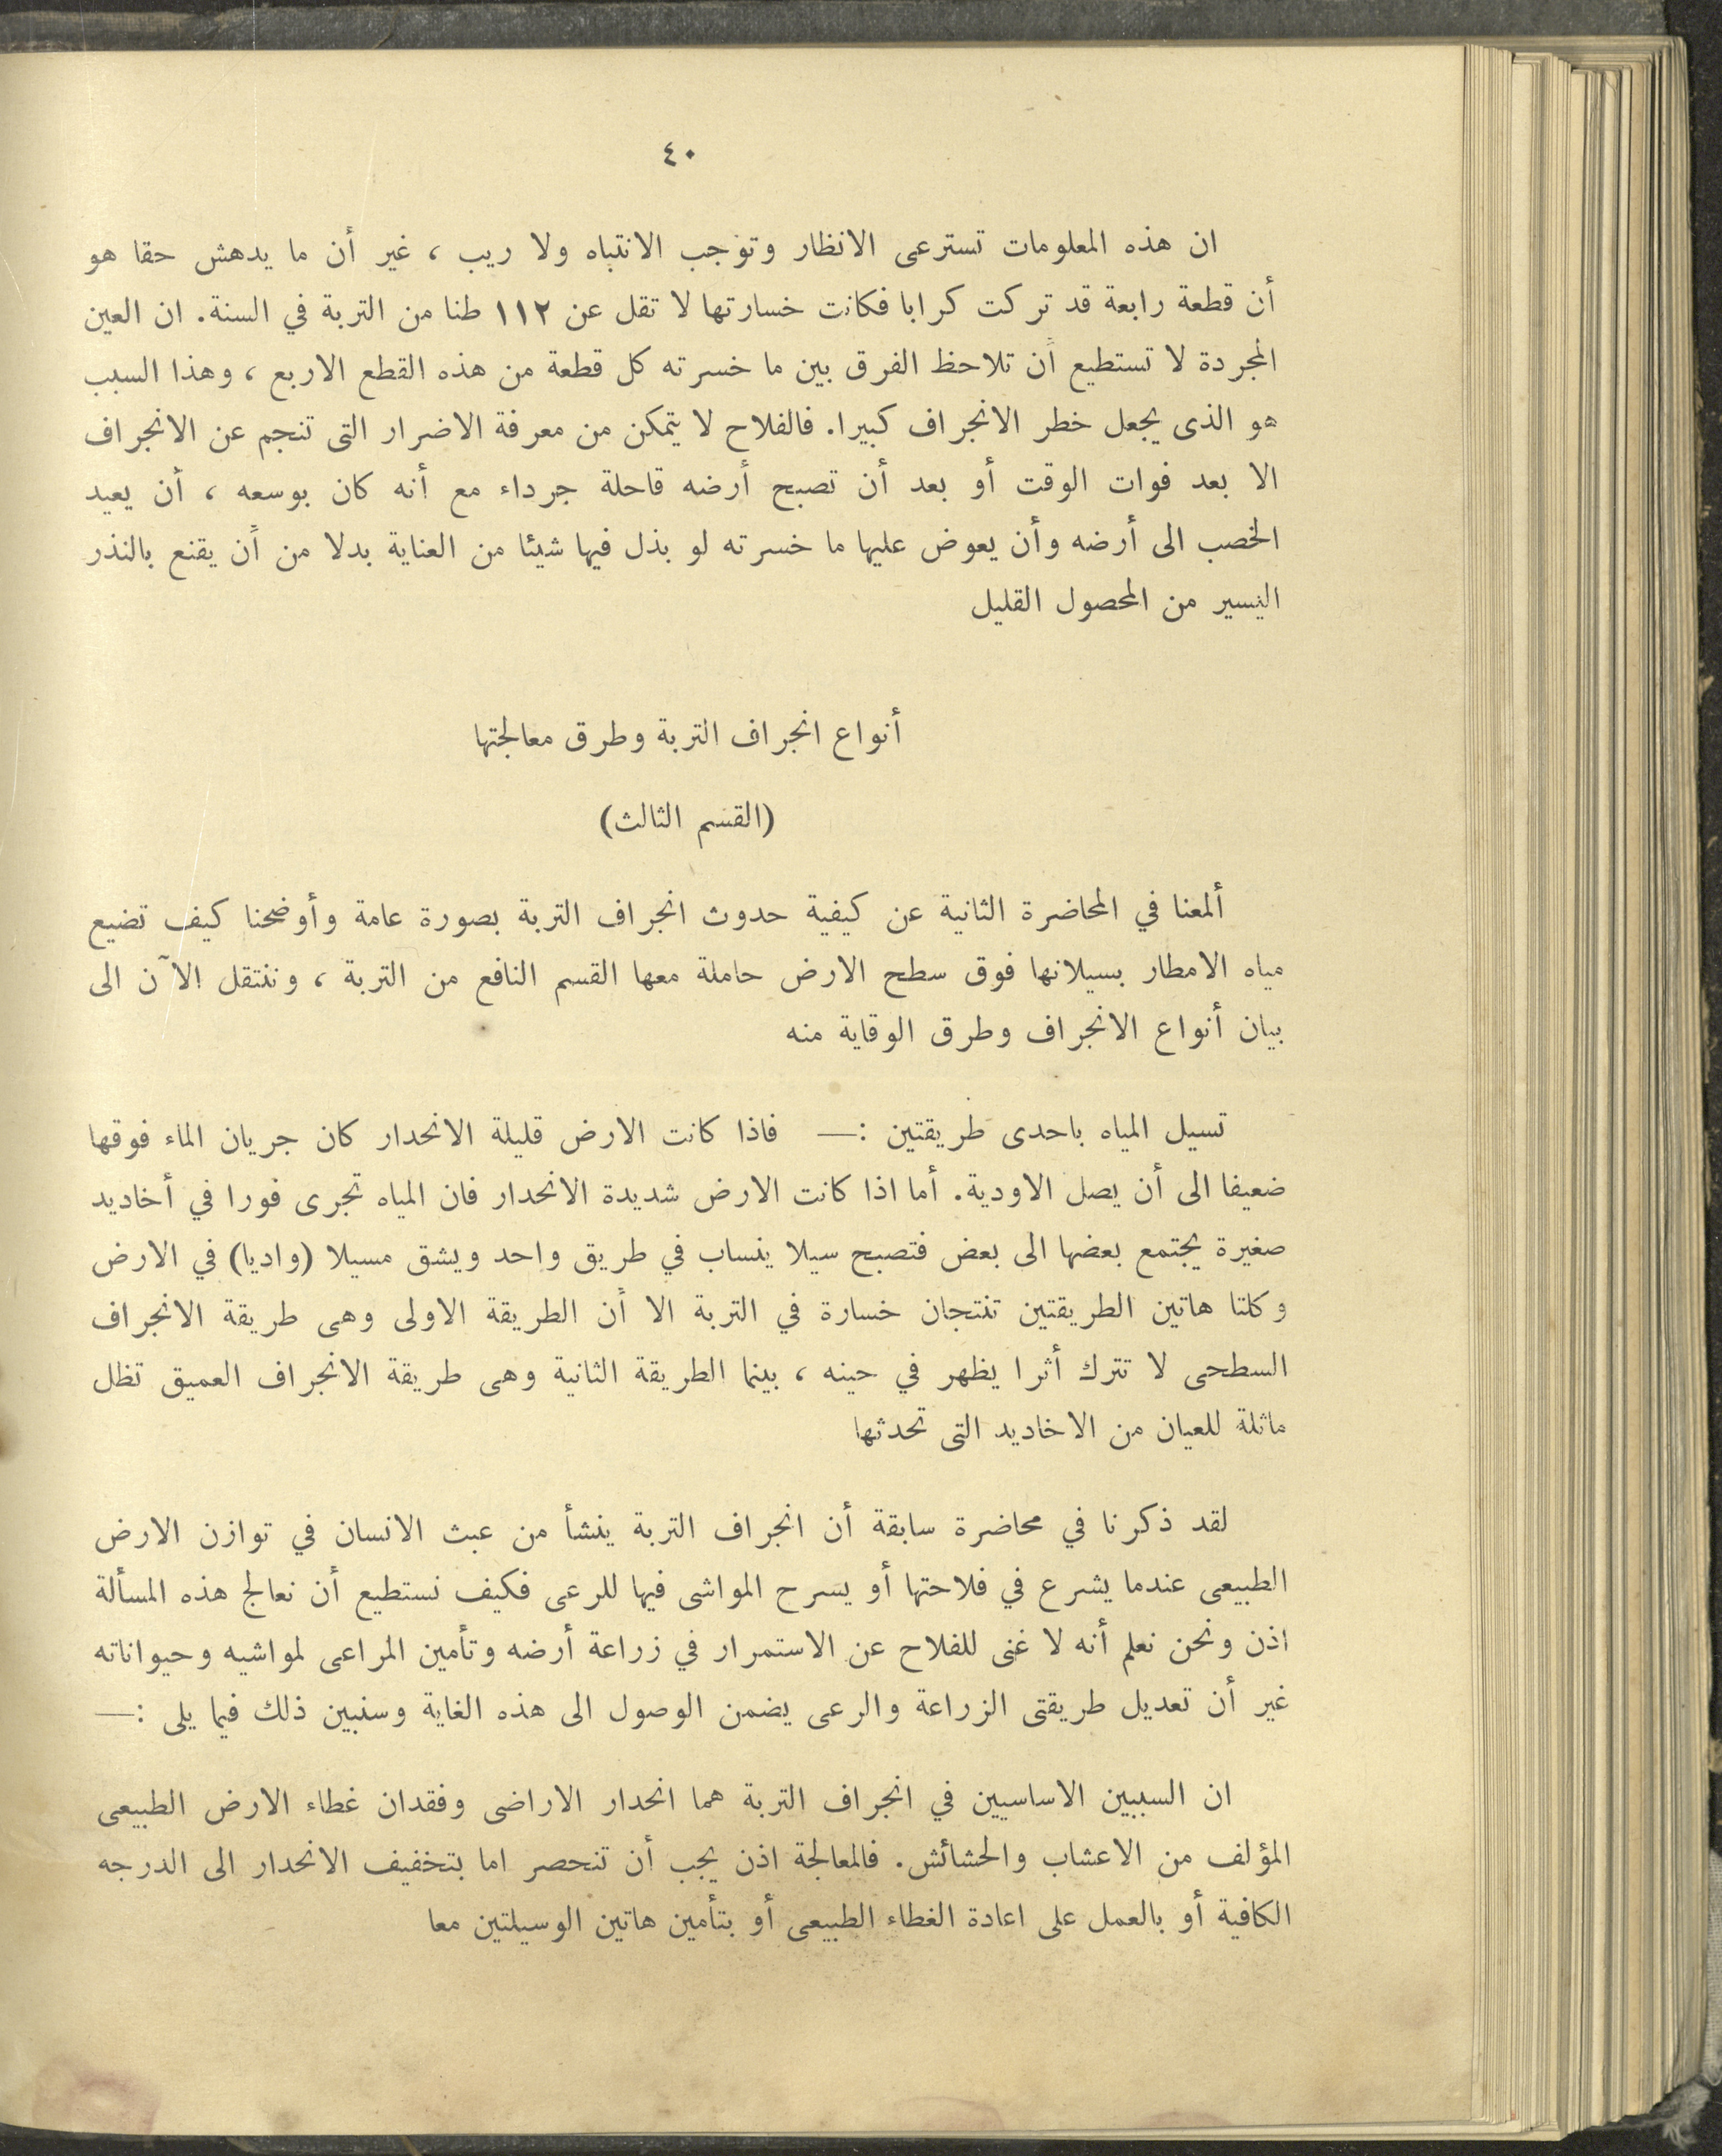 ٤٠
ان هذه المعلومات تسترعى الانظار وتوجب الانتباه ولا ريب ، غير أن ما يدهش حقا هو
أن قطعة رابعة قد تركت كرابا فكانت خسارتها لا تقل عن ١١٢ طنا من التربة في السنة. ان العين
المجردة لا تستطيع أن تلاحظ الفرق بين ما خسرته كل قطعة من هذه القطع الاربع ، وهذا السبب
هو الذى يجعل خطر الانجراف كبيرا. فالفلاح لا يتمكن من معرفة الاضرار التى تنجم عن الانجراف
الا بعد فوات الوقت أو بعد أن تصبح أرضه قاحلة جرداء مع أنه كان بوسعه ، أن يعيد
الخصب الى أرضه وأن يعوض عليها ما خسرته لو بذل فيها شيئا من العناية بدلا من أن يقنع بالنذر
اليسير من المحصول القليل
أنواع انجراف التربة وطرق معالجتها
(القسم الثالث)
ألمعنا في المحاضرة الثانية عن كيفية حدوث انجراف التربة بصورة عامة وأوضحنا كيف تضيع
مياه الامطار بسيلانها فوق سطح الارض حاملة معها القسم النافع من التربة ، وننتقل الآن الى
بيان أنواع الانجراف وطرق الوقاية منه
تسيل المياه باحدى طريقتين :— فاذا كانت الارض قليلة الانحدار كان جريان الماء فوقها
ضعيفا الى أن يصل الاودية. أما اذا كانت الارض شديدة الانحدار فان المياه تجرى فورا في أخاديد
صغيرة يجتمع بعضها الى بعض فتصبح سيلا ينساب في طريق واحد ويشق مسيلا (واديا) في الارض
وكلتا هاتين الطريقتين تنتجان خسارة في التربة الا أن الطريقة الاولى وهى طريقة الانجراف
السطحى لا تترك أثرا يظهر في حينه ، بينما الطريقة الثانية وهى طريقة الانجراف العميق تظل
ماثلة للعيان من الاخاديد التى تحدثها
لقد ذكرنا في محاضرة سابقة أن انجراف التربة ينشأ من عبث الانسان في توازن الارض
الطبيعى عندما يشرع في فلاحتها أو يسرح المواشى فيها للرعى فكيف نستطيع أن نعالج هذه المسألة
اذن ونحن نعلم أنه لا غنى للفلاح عن الاستمرار في زراعة أرضه وتأمين المراعى لمواشيه وحيواناته
غير أن تعديل طريقتى الزراعة والرعى يضمن الوصول الى هذه الغاية وسنبين ذلك فيما يلى :—
ان السببين الاساسيين في انجراف التربة هما انحدار الاراضى وفقدان غطاء الارض الطبيعى
المؤلف من الاعشاب والحشائش. فالمعالجة اذن يجب أن تنحصر اما بتخفيف الانحدار الى الدرجه
الكافية أو بالعمل على اعادة الغطاء الطبيعى أو بتأمين هاتين الوسيلتين معا